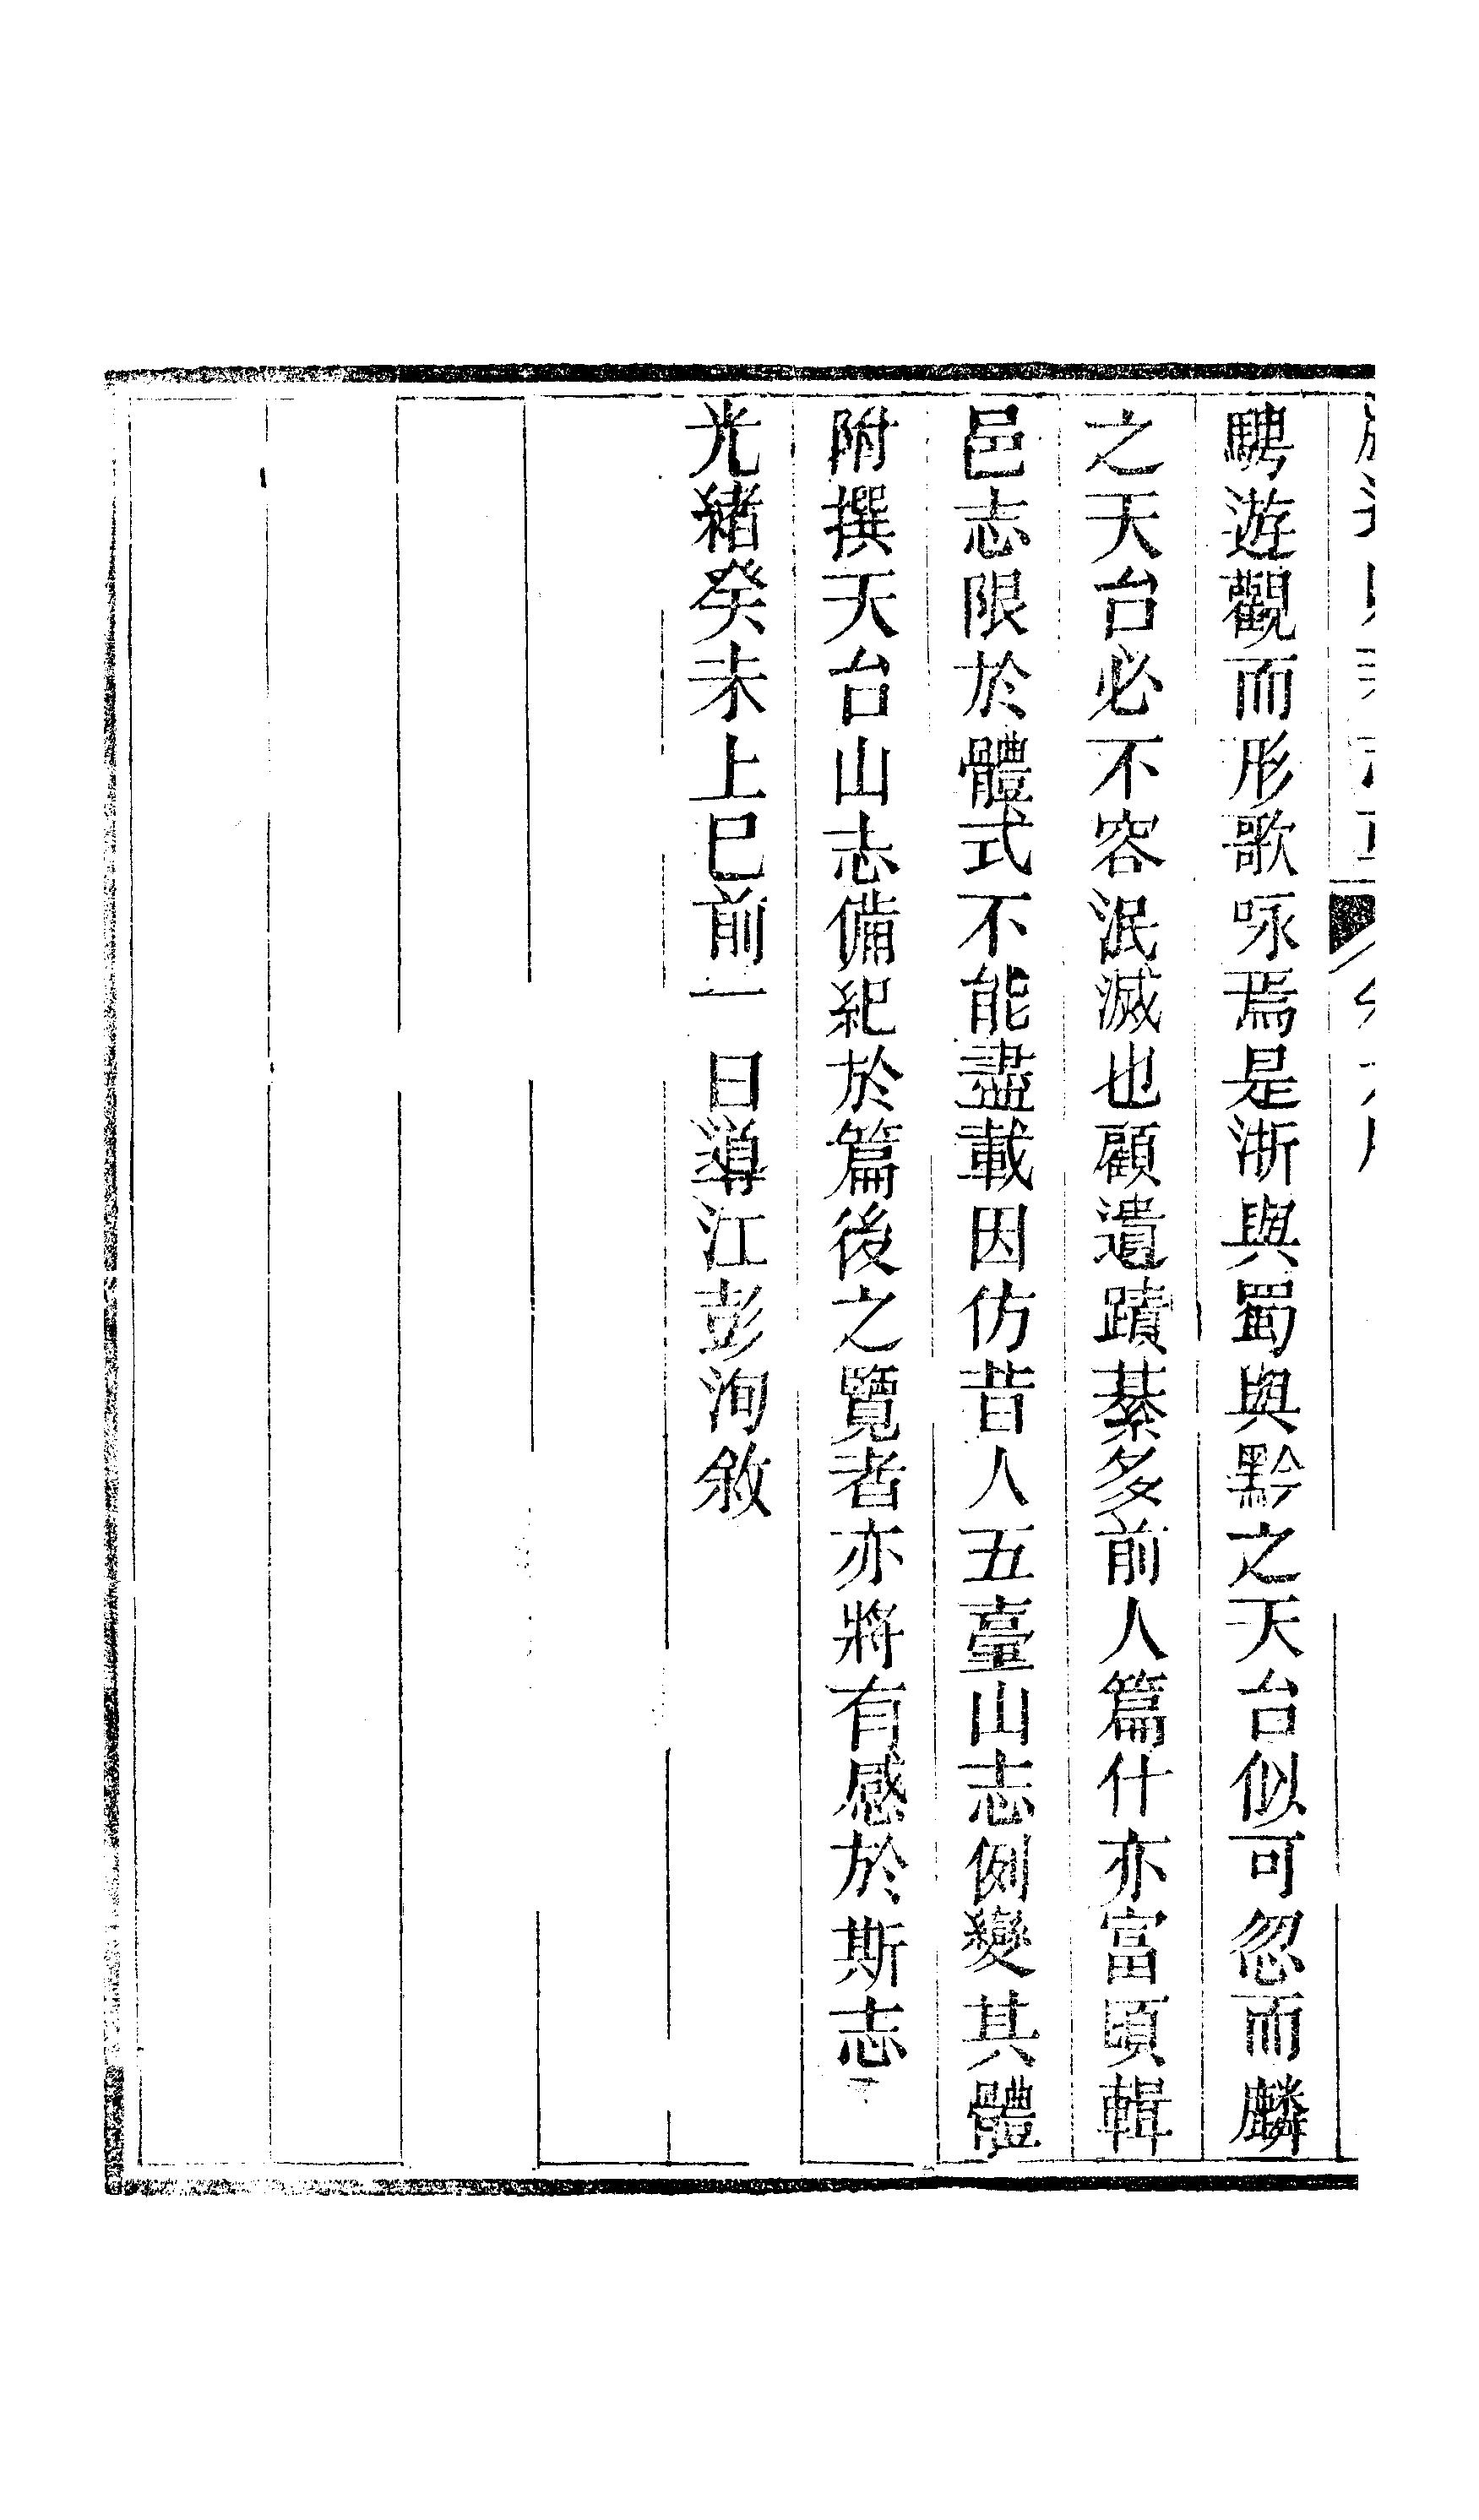 騁遊觀而形歌咏焉是浙與蜀與黔之天台似可忽而麟
之天台必不容泯滅也顧遺蹟綦多前人篇什亦富頃輯
邑志限於體式不能盡載因仿昔人五臺山志例變其體
附撰天台山志備紀於篇後之覽者亦將有感於斯志
光緒癸未上巳前一日導江彭洵敘